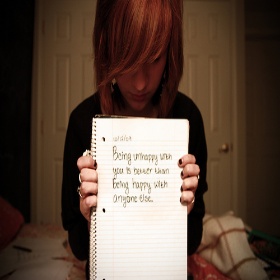 Being unhappy with
you is better than
being happy with
anyone else.